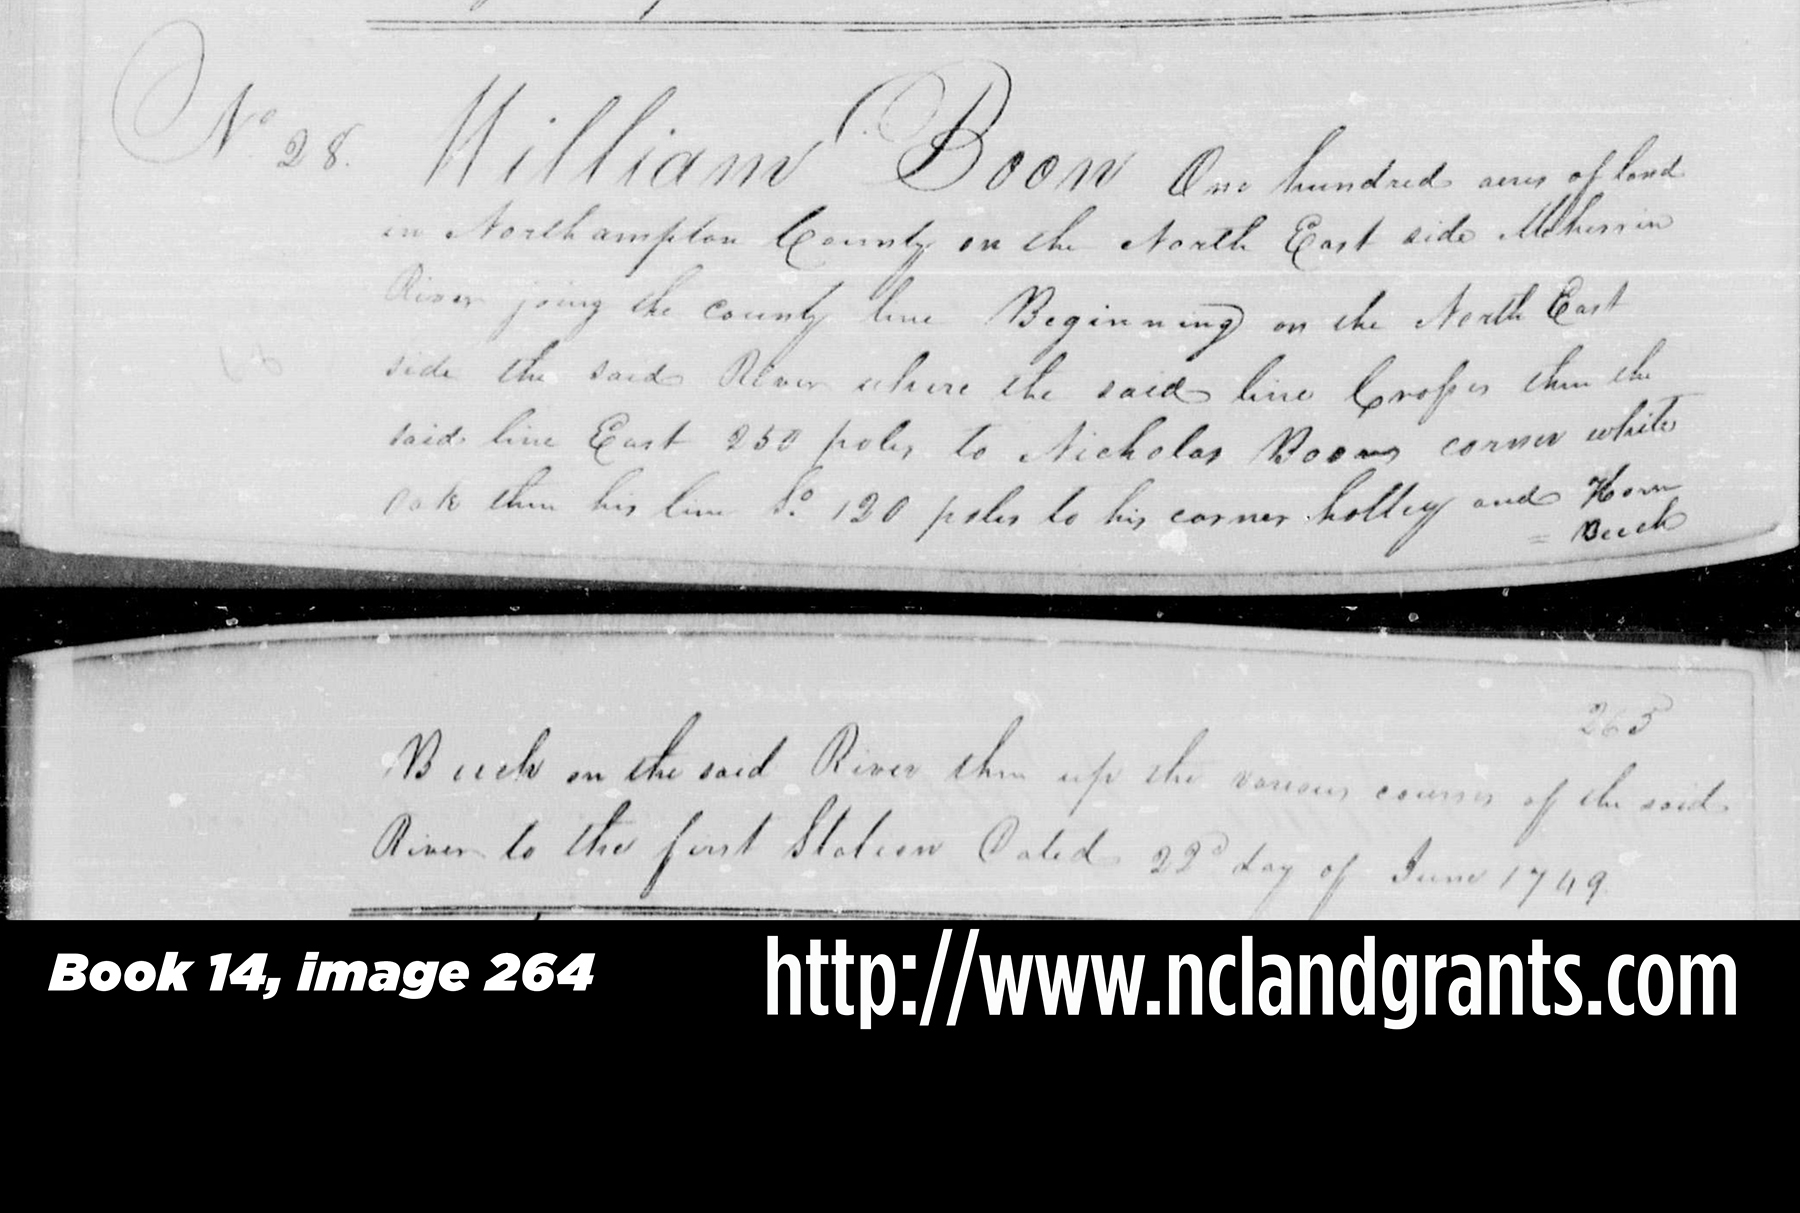 No 28. William Boon One hundred acres of land
in Northampton County on the North East side Meherrin
River joing the county line Beginning on the North East
side the said River where the said line Crosses then the
said line East 250 poles to Nicholas Boons corner white
oak then his line So. 120 poles to his corner holley and Horn
= Beech
265
Beech on the said River then up the various courses of the said
River to the first Station Dated 22d day of June 1749
Book 14, image 264
http://www.nclandgrants.com